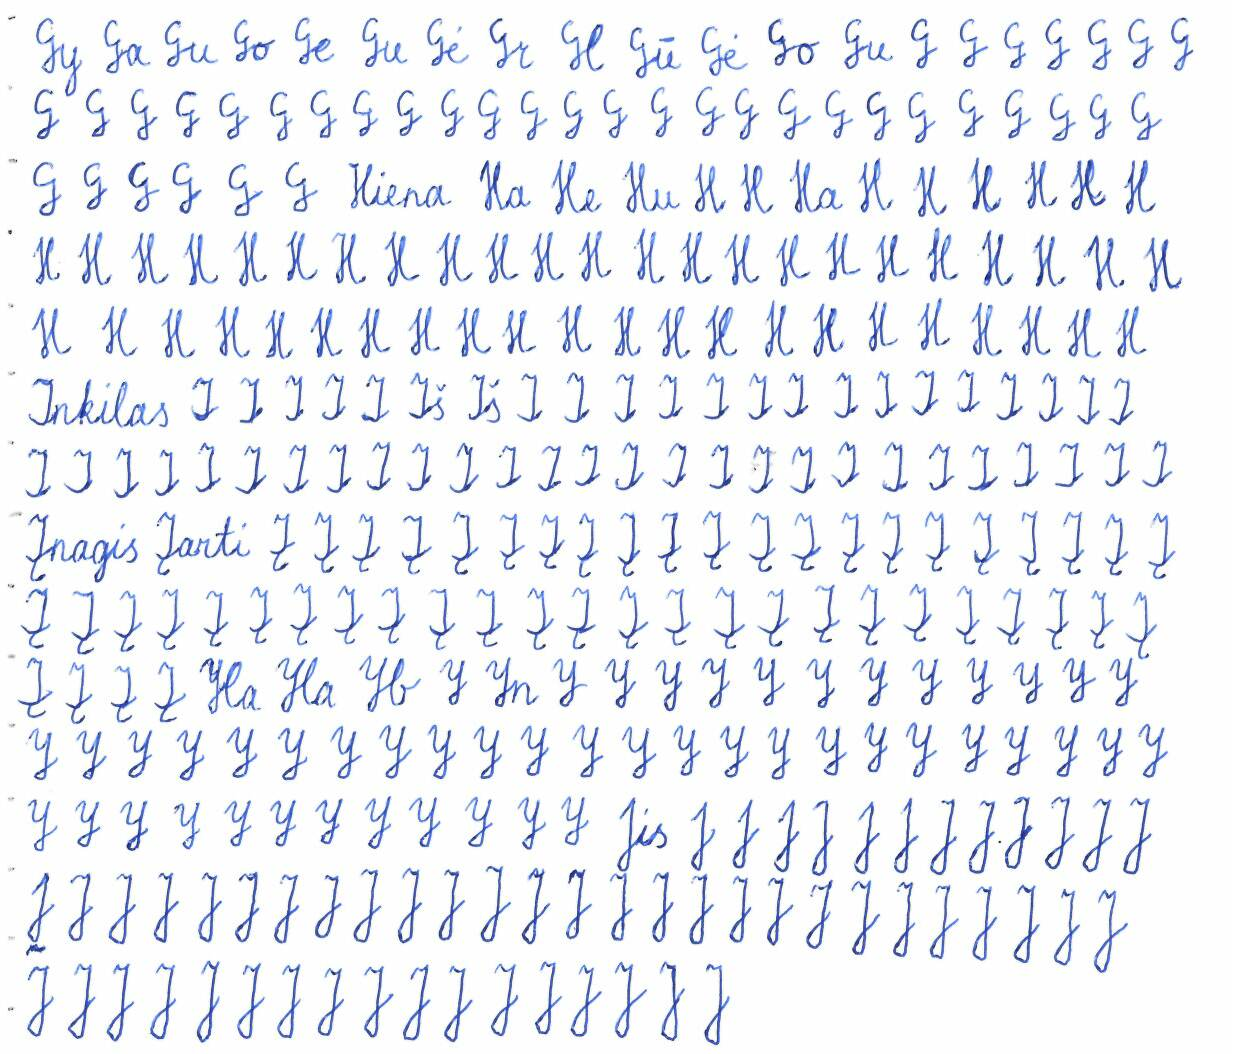 Gy Ga Gu Go Ge Gu Gė Gr Gl Gū Gė Go Gu G G G G G G G
G G G G G G G G G G G G G G G G G G G G G G G G G G
G G G G G G Hiena Ha He Hu H H Ha H H H H H H
H H H H H H H H H H H H H H H H H H H H H H H
H H H H H H H H H H H H H H H H H H H H H H
Inkilas I I I I I Iš Iš I I I I I I I I I I I I I I I
I I I I I I I I I I I I I I I I I I I I I I I I I I I
Įnagis Įarti Į Į Į Į Į Į Į Į Į Į Į Į Į Į Į Į Į Į Į Į Į
Į Į Į Į Į Į Į Į Į Į Į Į Į Į Į Į Į Į Į Į Į Į Į Į Į
Į Į Į Į Yla Yla Yb Y Yn Y Y Y Y Y Y Y Y Y Y Y Y
Y Y Y Y Y Y Y Y Y Y Y Y Y Y Y Y Y Y Y Y Y Y Y Y
Y Y Y Y Y Y Y Y Y Y Y Y Jis J J J J J J J J J J J J
J J J J J J J J J J J J J J J J J J J J J J J J J J J
J J J J J J J J J J J J J J J J J